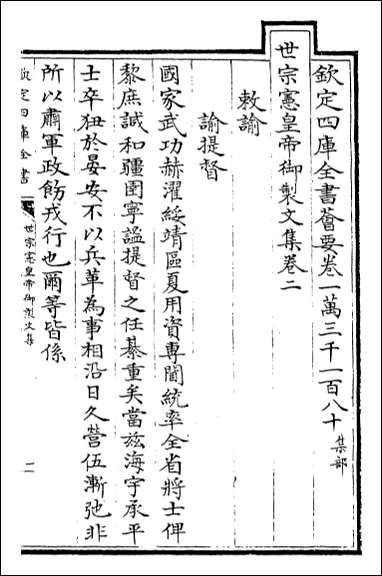 欽定四庫全書薈要卷一萬三千一百八十 集部
世宗憲皇帝御製文集卷二
敕諭
諭提督
國家武功赫濯綏靖區夏用資專閫統率全省將士俾
黎庶誠和疆圉寧謐提督之任綦重矣當茲海宇承平
士卒狃於晏安不以兵革為事相沿日久營伍漸弛非
所以肅軍政飭戎行也爾等皆係
欽定四庫全書
世宗憲皇帝御製文集
一